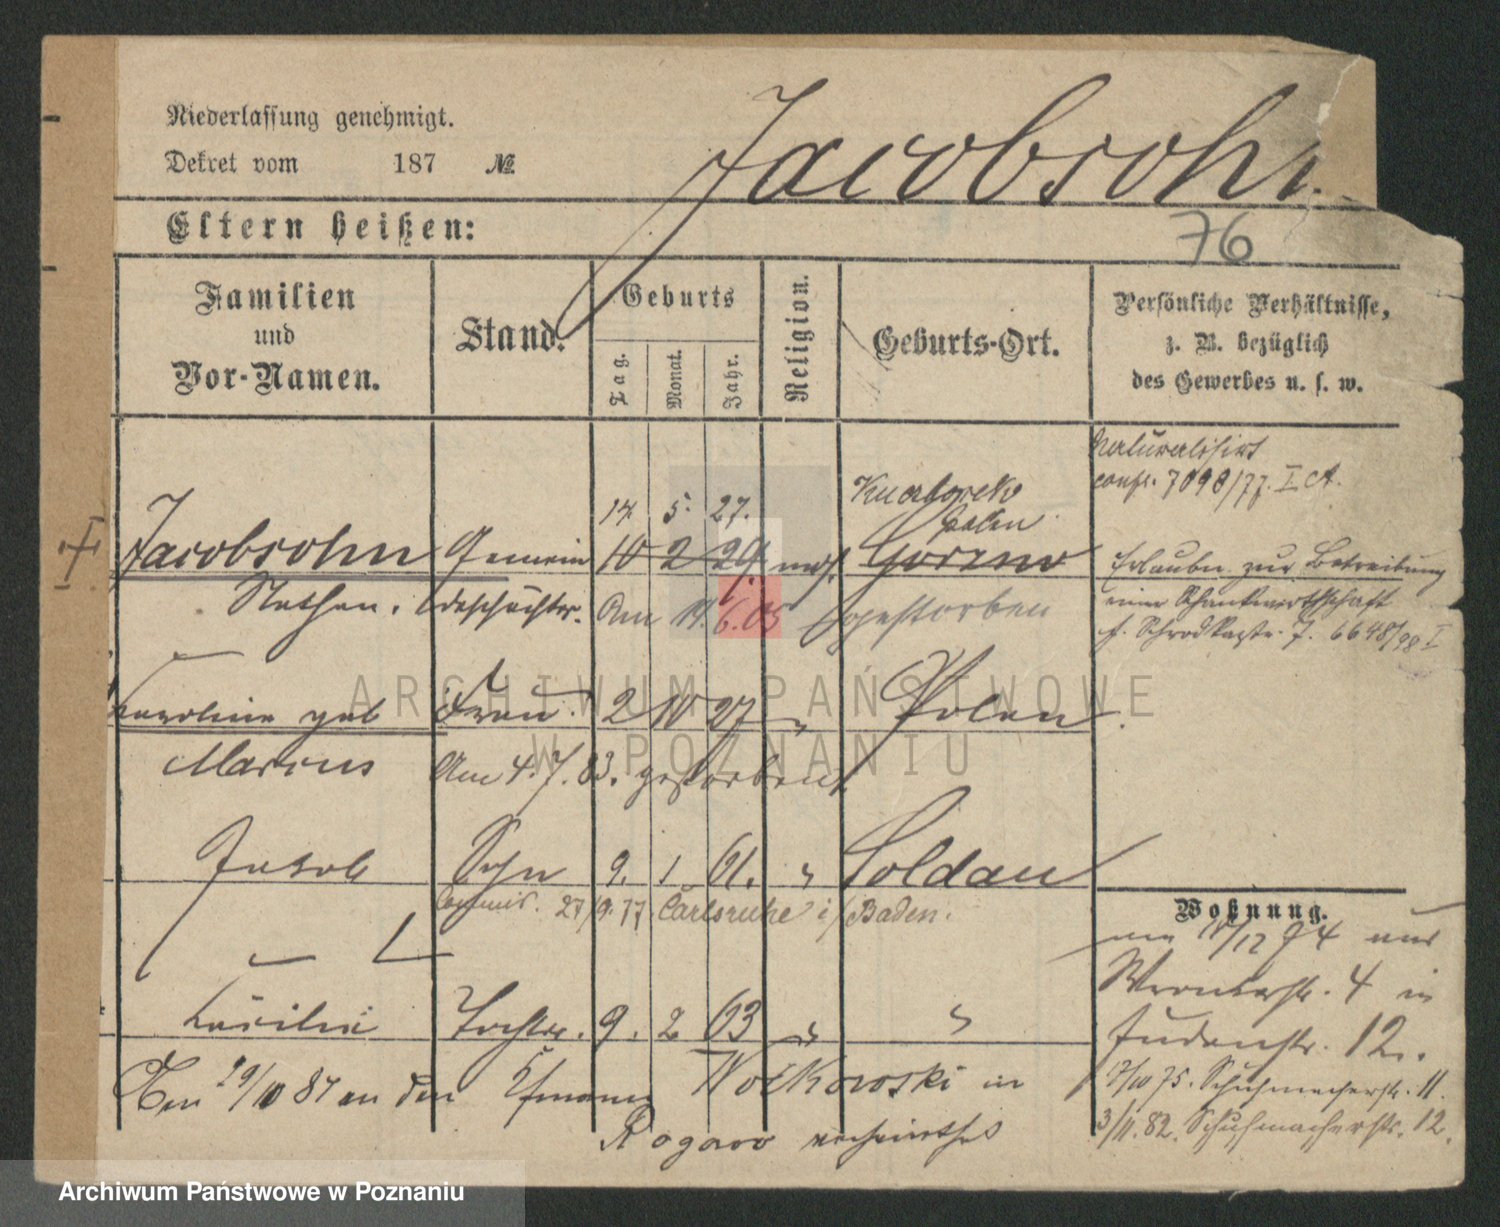 Niederlassung genehmigt.
Dekret vom 187 №
Jacobsohn.
Eltern heißen:
76
Familien
und
Vor-Namen.
Stand.
Geburts
Tag.
Monat.
Jahr.
Religion.
Geburts-Ort.
Persönliche Verhältnisse,
z. B. bezüglich
des Gewerbes u. s. w.
Naturalisirt
conf. 7098/77. I Ct.
14. 5. 27.
Polen
Jacobsohn Gemein 10 2 29. mos. Gorzno
Nathan. Am 19. 6. 05 gestorben
Erlaubn. zur Betreibung
einer Schankwirthschaft
f. Schrodkastr. 7. 6648/98 I
Karoline geb Frau. 2 10 27 " Polen.
Marcus Am 4. 7. 83. gestorben
Jakob Sohn 9. 1 61. " Soldau
Commis. 27/9. 77. Carlsruhe i/Baden.
Wohnung.
12 74 aus
Wronkerstr. 4 in
Judenstr. 12.
Cäcilie Tochter. 9. 2 63 " "
Den 29/10 87 an den Kfmann in
Rogowo verheirathet
7/10 75. Schuhmacherstr. 11.
3/11. 82. Schuhmacherstr. 12.
ARCHIWUM PAŃSTWOWE
W POZNANIU
Archiwum Państwowe w Poznaniu